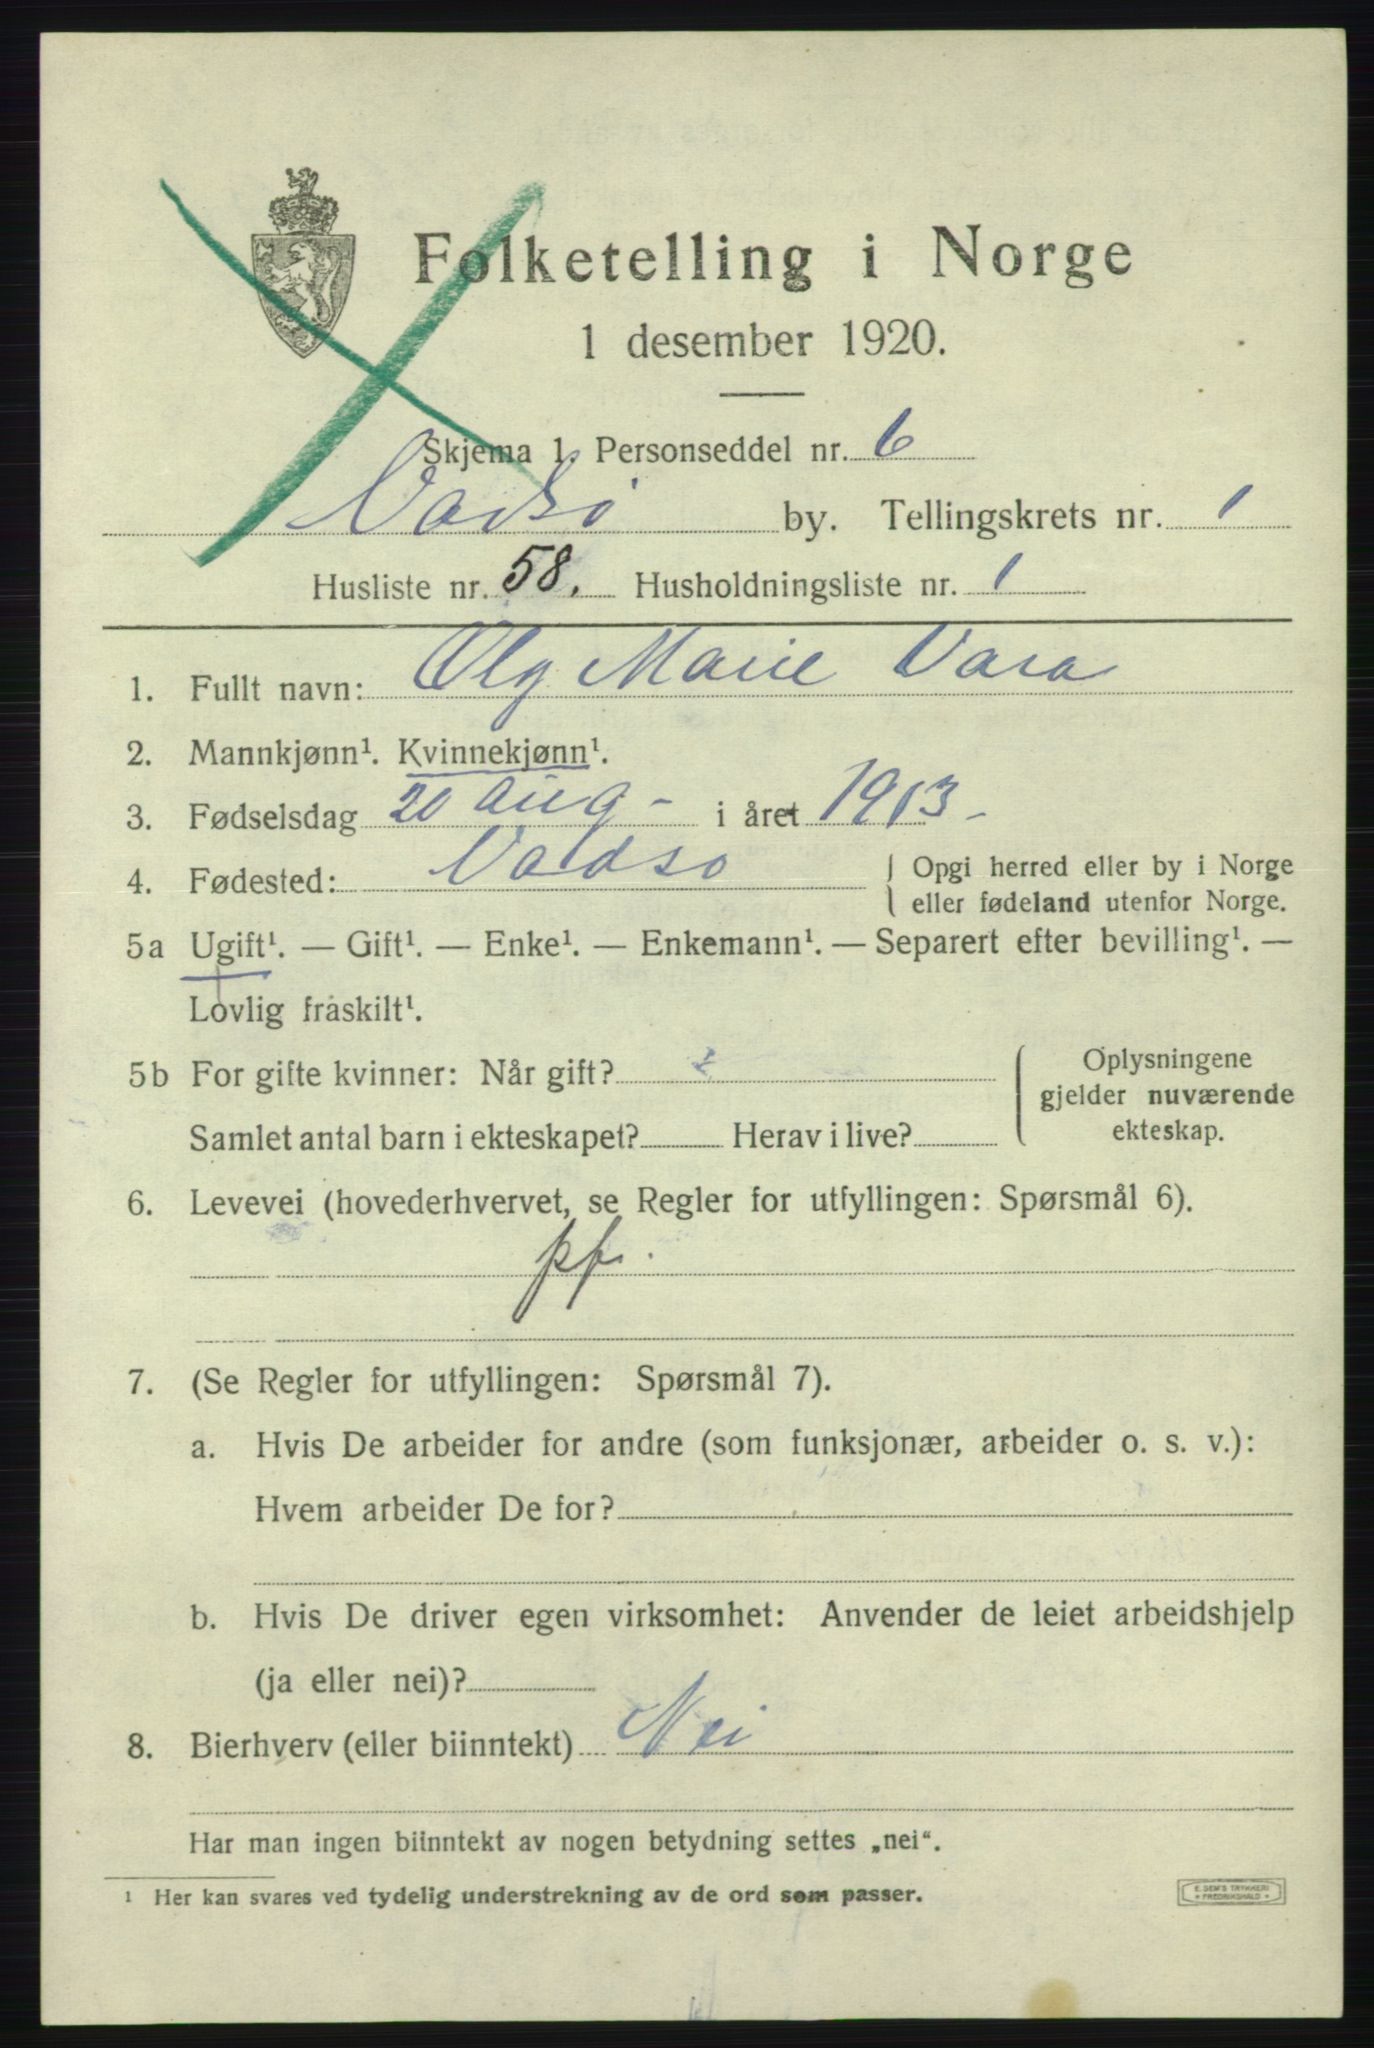 Folketelling i Norge
1 desember 1920.
Skjema 1. Personseddel nr. 6
Vadsø by. Tellingskrets nr. 1
Husliste nr. 58. Husholdningsliste nr. 1
1. Fullt navn: Olg Marie Vara
2. Mannkjønn¹. Kvinnekjønn¹.
3. Fødselsdag 20 aug - i året 1913 -
4. Fødested: Vadso { Opgi herred eller by i Norge
eller fødeland utenfor Norge.
5a Ugift¹. — Gift¹. — Enke¹. — Enkemann¹. — Separert efter bevilling¹. —
Lovlig fraskilt¹.
5b For gifte kvinner: Når gift?
Samlet antal barn i ekteskapet? Herav i live?
{ Oplysningene
gjelder nuværende
ekteskap.
6. Levevei (hovederhvervet, se Regler for utfyllingen: Spørsmål 6).
pf.
7. (Se Regler for utfyllingen: Spørsmål 7).
a. Hvis De arbeider for andre (som funksjonær, arbeider o. s. v.):
Hvem arbeider De for?
b. Hvis De driver egen virksomhet: Anvender de leiet arbeidshjelp
(ja eller nei)?
8. Bierhverv (eller biinntekt) Nei
Har man ingen biinntekt av nogen betydning settes „nei“.
¹ Her kan svares ved tydelig understrekning av de ord som passer.
E. SEM'S TRYKKERI
* FREDRIKSHALD *